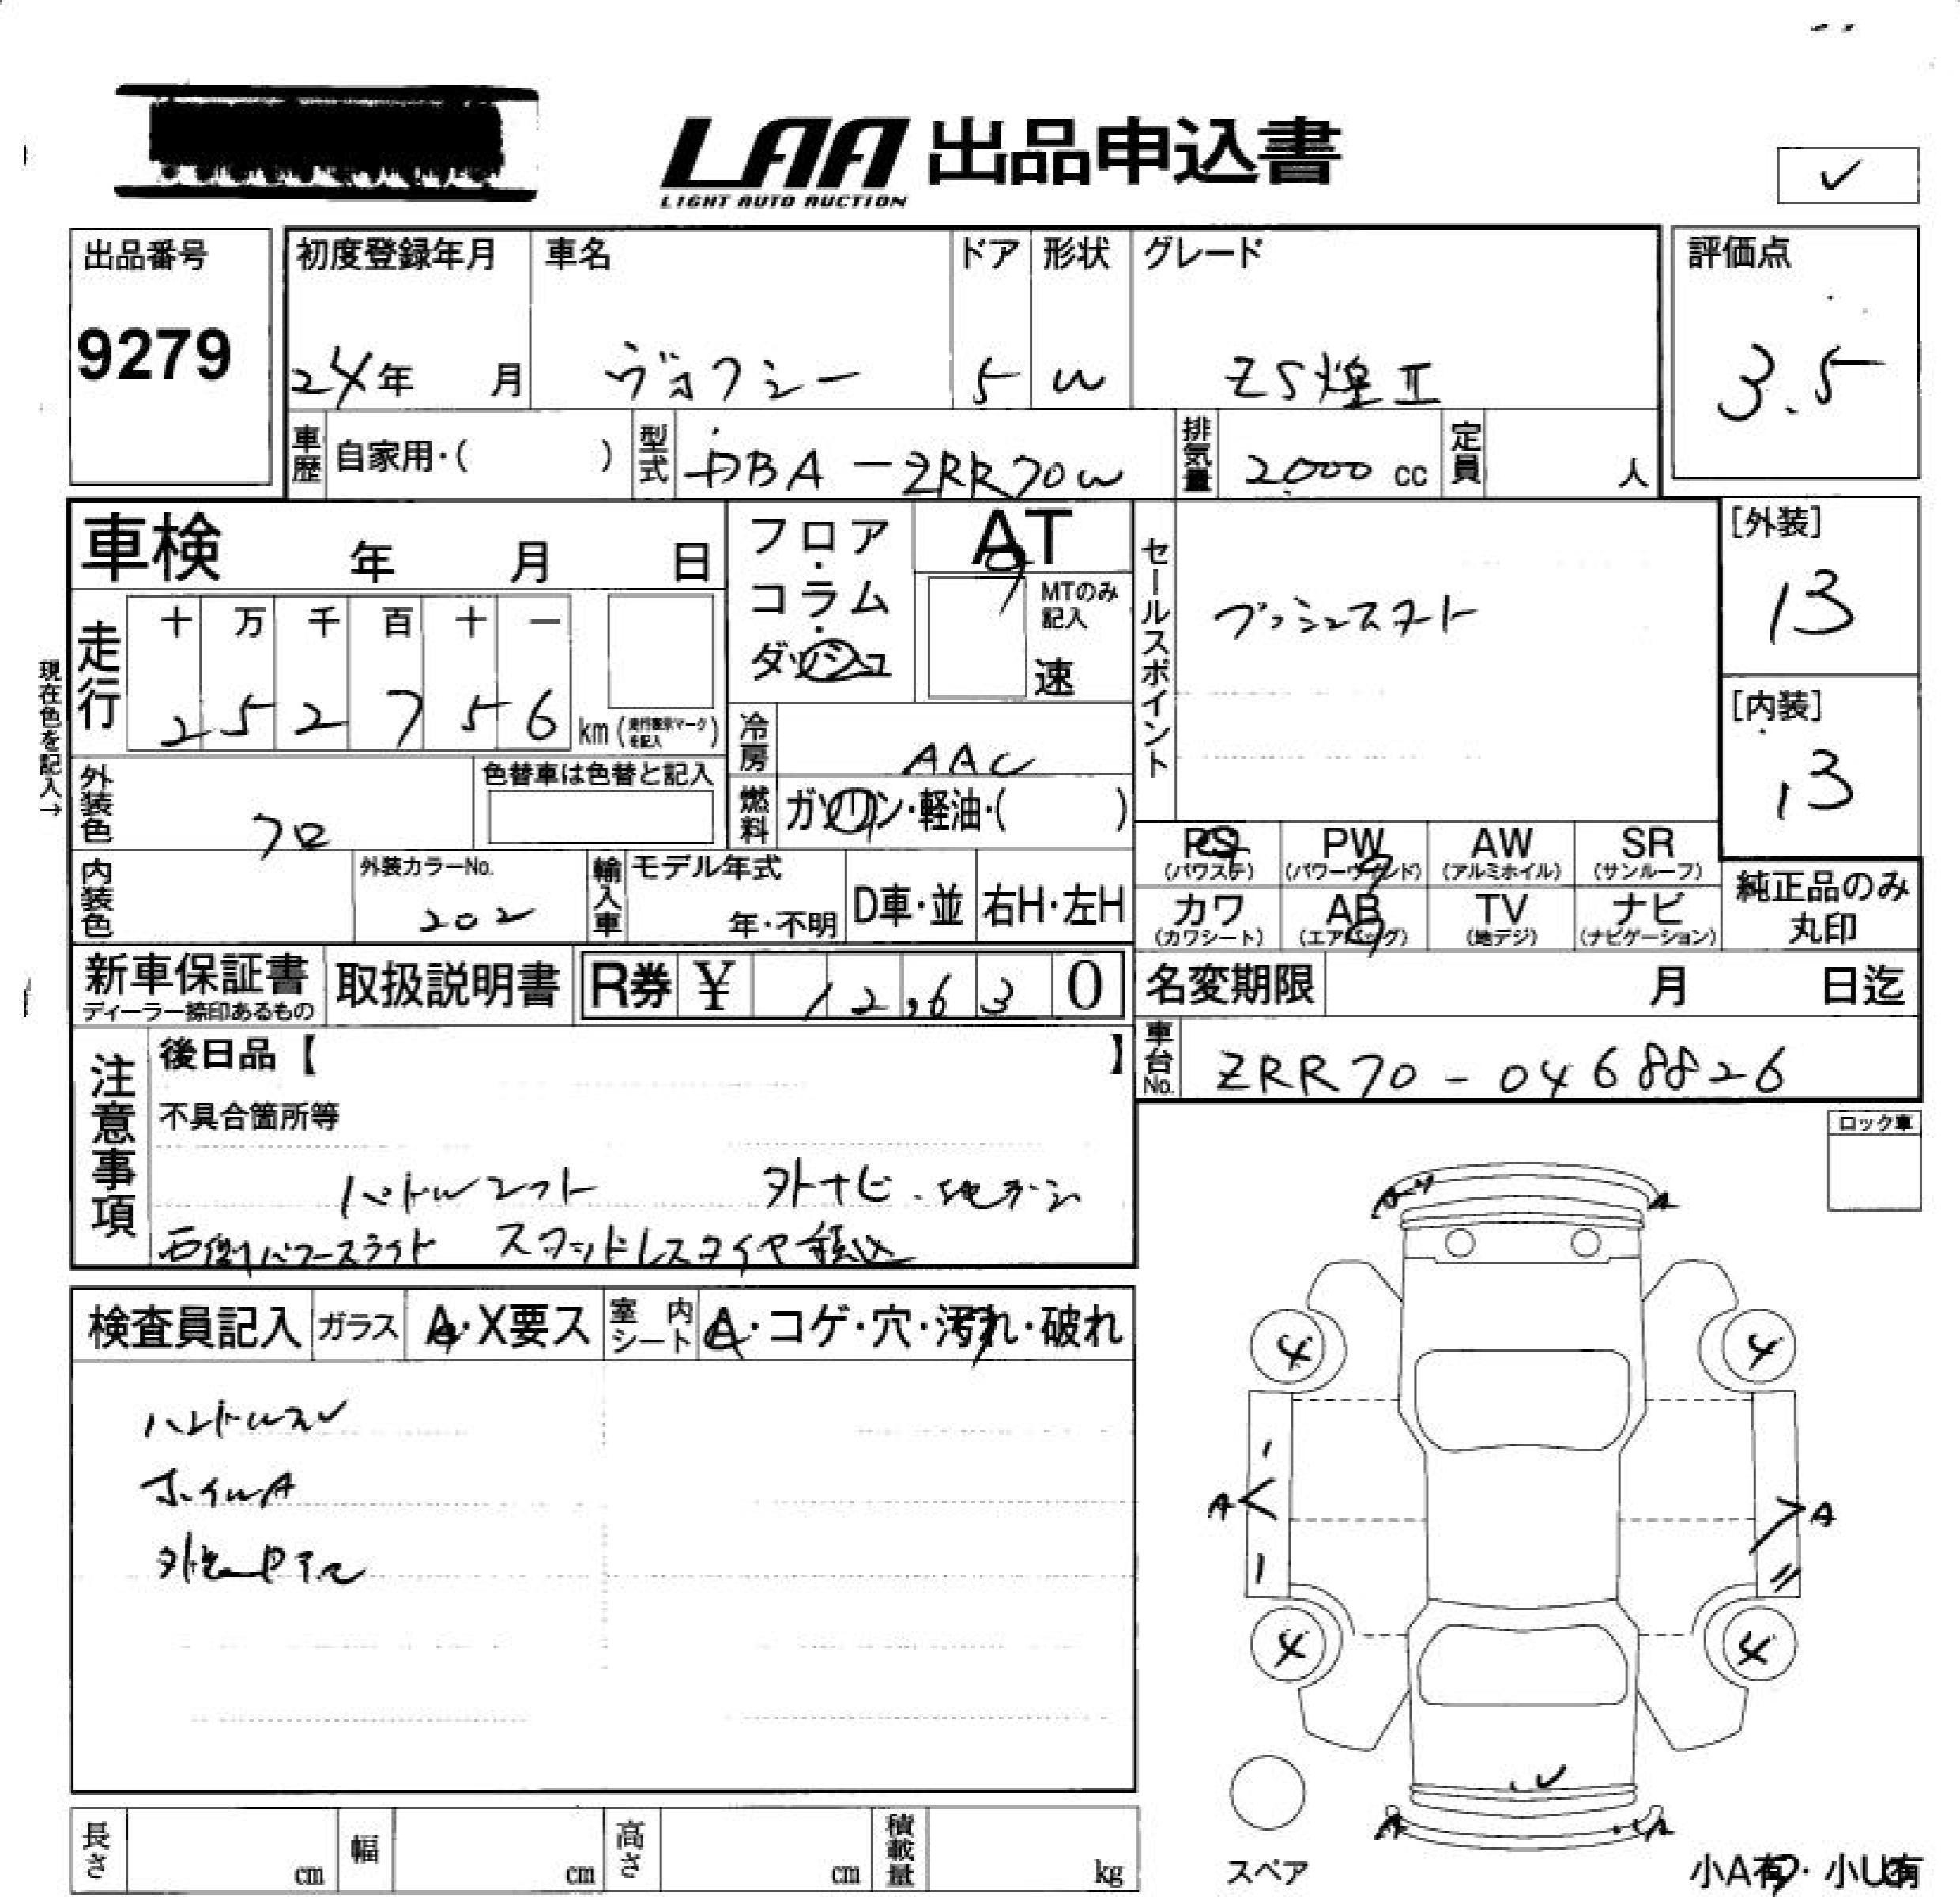 LAA 出品申込書
LIGHT AUTO AUCTION
出品番号 初度登録年月 車名 ドア 形状 グレード 評価点
9279 24年 月 ヴォクシー 5 W ZS煌Ⅱ 3.5
車歴 自家用・( ) 型式 DBA-ZRR70W 排気量 2000 cc 定員 人
車検 年 月 日 フロア・コラム・ダッシュ AT
MTのみ記入 速
セールスポイント プッシュスタート
[外装] 13
[内装] 13
現在色を記入→
走行 十 万 千 百 十 一
2 5 2 7 5 6 km (走行表示マークを記入)
冷房 AAC
外装色 クロ 色替車は色替と記入
燃料 ガソリン・軽油・( )
PS (パワステ) PW (パワーウインド) AW (アルミホイル) SR (サンルーフ)
カワ (カワシート) AB (エアバッグ) TV (地デジ) ナビ (ナビゲーション)
純正品のみ丸印
内装色 外装カラーNo. 202 輸入車 モデル年式 年・不明 D車・並 右H・左H
新車保証書 ディーラー捺印あるもの 取扱説明書 R券 ¥ 12,630
名変期限 月 日迄
車台No. ZRR70-0468826
注意事項 後日品【 】
不具合箇所等
パドルシフト 外ナビ・地デジ
右側パワースライド スタッドレスタイヤ積込
ロック車
検査員記入 ガラス A・X要ス 室内シート A・コゲ・穴・汚れ・破れ
ハンドルスレ
ホイルA
A A
4 4
A A
4 4
A A
スペア
小A有・小U有
長さ cm 幅 cm 高さ cm 積載量 kg